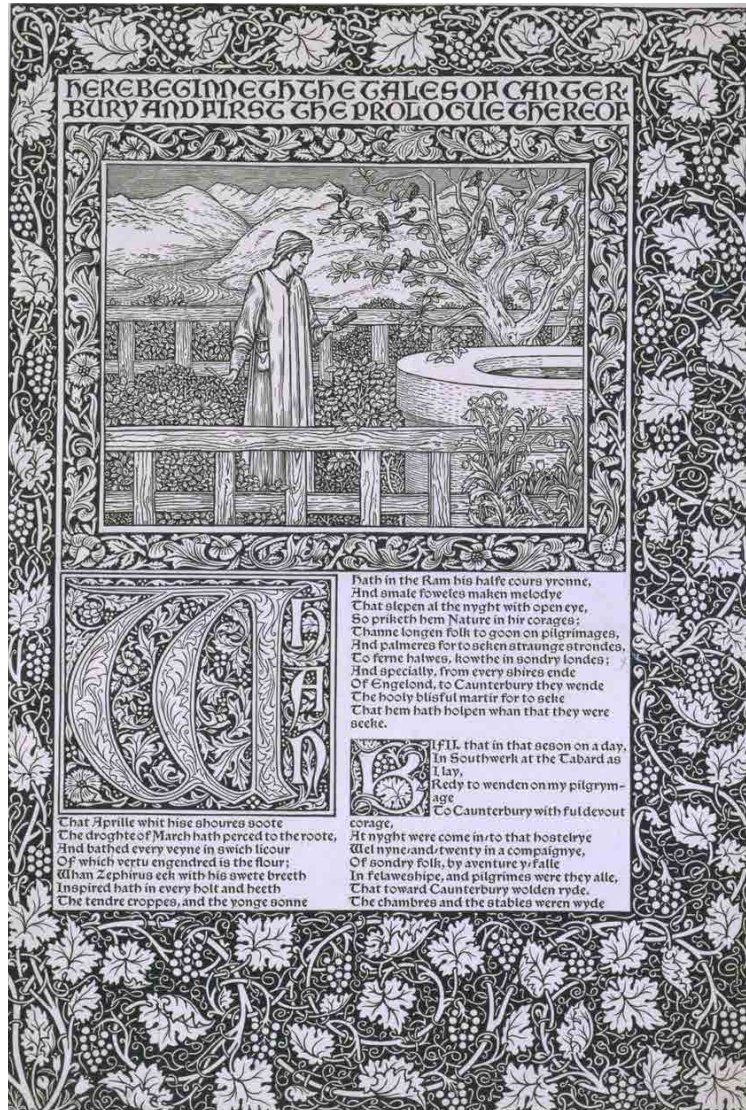 HERE BEGINNETH THE TALES OF CANTER-
BURY AND FIRST THE PROLOGUE THEREOF
WHAN
That Aprille whit hise shoures soote
The droghte of March hath perced to the roote,
And bathed every veyne in swich licour
Of which vertu engendred is the flour;
Whan Zephirus eek with his swete breeth
Inspired hath in every holt and heeth
The tendre croppes, and the yonge sonne
Hath in the Ram his halfe cours yronne,
And smale foweles maken melodye
That slepen al the nyght with open eye,
So priketh hem Nature in hir corages;
Thanne longen folk to goon on pilgrimages,
And palmeres for to seken straunge strondes,
To ferne halwes, kowthe in sondry londes;
And specially, from every shires ende
Of Engelond, to Caunterbury they wende
The hooly blisful martir for to seke
That hem hath holpen whan that they were
seeke.
BIFIL that in that seson on a day,
In Southwerk at the Tabard as
I lay,
Redy to wenden on my pilgrym-
age
To Caunterbury with ful devout
corage,
At nyght were come in-to that hostelrye
Wel nyne-and-twenty in a compaignye,
Of sondry folk, by aventure y-falle
In felaweshipe, and pilgrimes were they alle,
That toward Caunterbury wolden ryde.
The chambres and the stables weren wyde